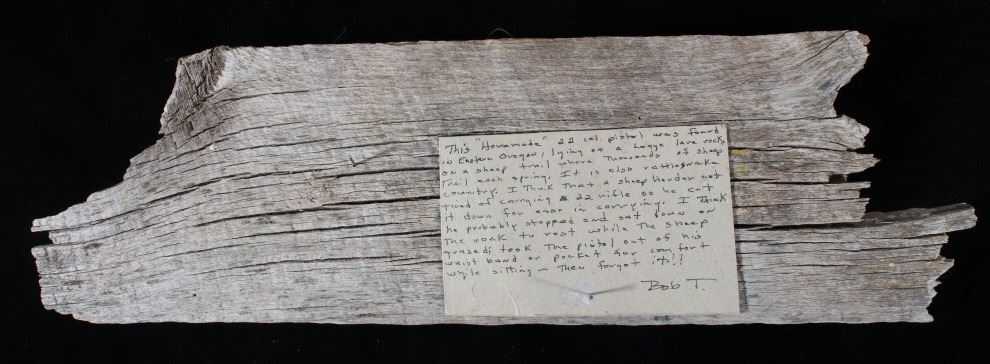 This "Homemade" 22 cal. pistol was found
in Eastern Oregon, lying on a Large lava rock,
on a sheep trail where Thousands of sheep
Trail each spring. It is also rattlesnake
country. I Think That a sheep herder got
tired of carrying a 22 rifle so he cut
it down for ease in carrying. I Think
he probably stopped and sat down on
The rock to rest while The sheep
grazed; took The pistol out of his
waist band or pocket for comfort
while sitting — Then forgot it!!
Bob T.